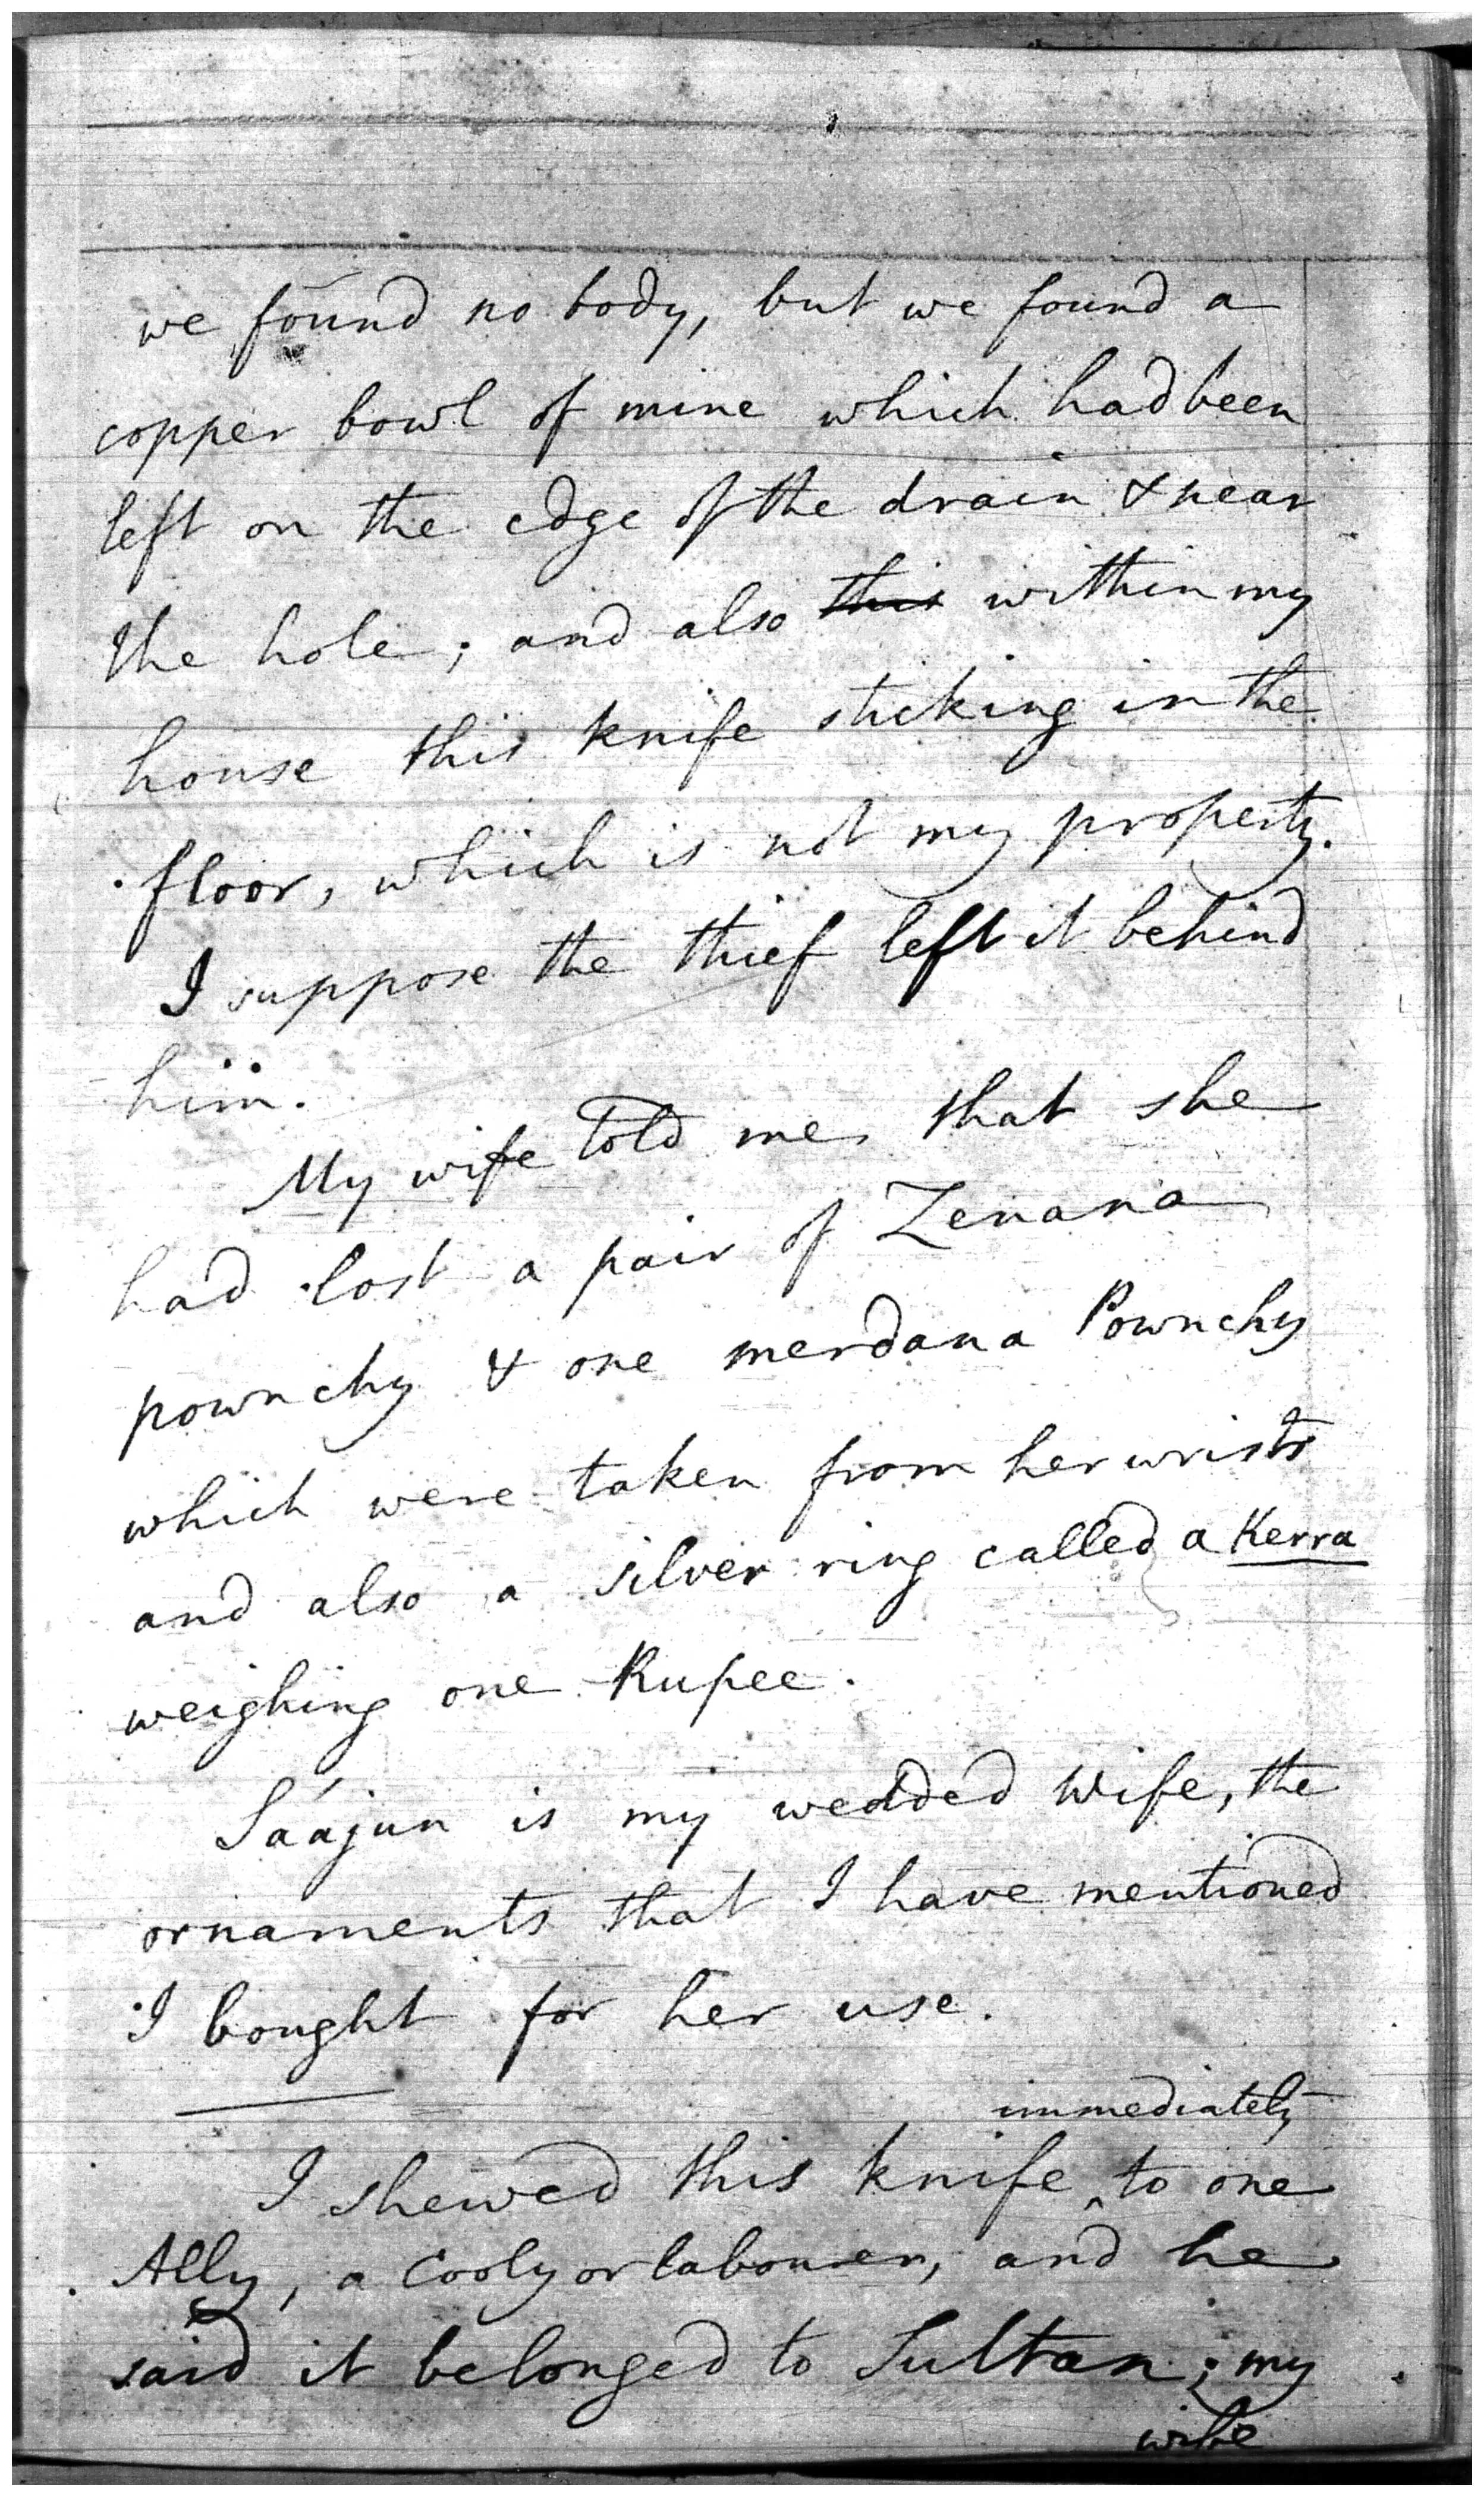 we found no body, but we found a
copper bowl of mine which had been
left on the edge of the drain & near
the hole; and also this within my
house this knife sticking in the
floor, which is not my property.
I suppose the thief left it behind
him.
My wife told me that she
had lost a pair of Zenana
pownchy & one merdana Pownchy
which were taken from her wrists
and also a silver ring called a Kerra
weighing one Rupee.
Sáajun is my wedded wife, the
ornaments that I have mentioned
I bought for her use.
immediately
I shewed this knife ‸ to one
Ally, a Cooly or labourer, and he
said it belonged to Sultan; my
wife